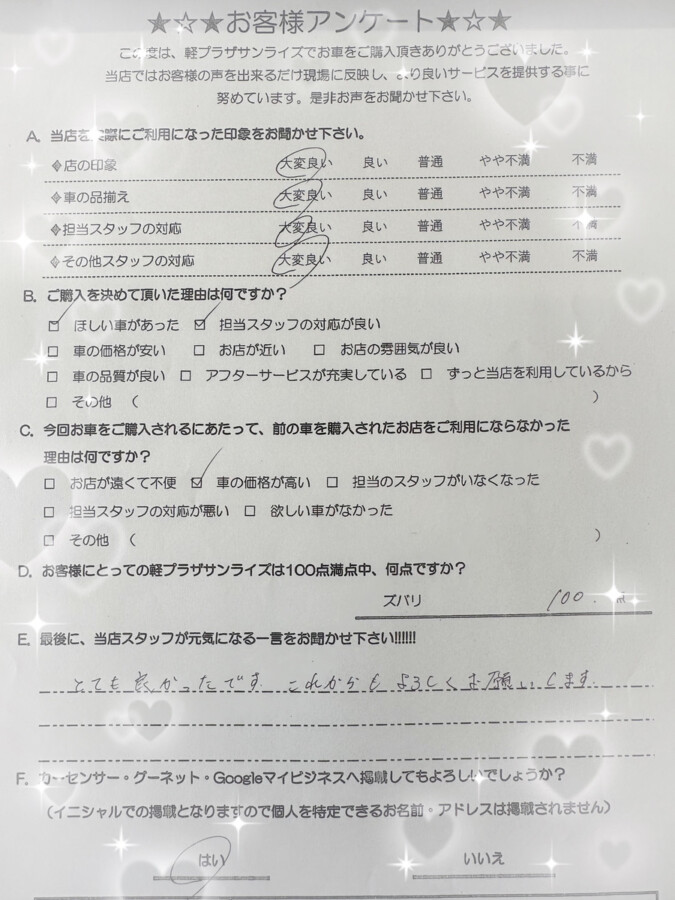 ★☆★お客様アンケート★☆★
この度は、軽プラザサンライズでお車をご購入頂きありがとうございました。
当店ではお客様の声を出来るだけ現場に反映し、より良いサービスを提供する事に
努めています。是非お声をお聞かせ下さい。
A. 当店を実際にご利用になった印象をお聞かせ下さい。
◈店の印象 大変良い 良い 普通 やや不満 不満
◈車の品揃え 大変良い 良い 普通 やや不満 不満
◈担当スタッフの対応 大変良い 良い 普通 やや不満 不満
◈その他スタッフの対応 大変良い 良い 普通 やや不満 不満
B. ご購入を決めて頂いた理由は何ですか？
☑ ほしい車があった ☑ 担当スタッフの対応が良い
□ 車の価格が安い □ お店が近い □ お店の雰囲気が良い
□ 車の品質が良い □ アフターサービスが充実している □ ずっと当店を利用しているから
□ その他 （ ）
C. 今回お車をご購入されるにあたって、前の車を購入されたお店をご利用にならなかった
理由は何ですか？
□ お店が遠くて不便 ☑ 車の価格が高い □ 担当のスタッフがいなくなった
□ 担当スタッフの対応が悪い □ 欲しい車がなかった
□ その他 （ ）
D. お客様にとっての軽プラザサンライズは100点満点中、何点ですか？
ズバリ 100. 点
E. 最後に、当店スタッフが元気になる一言をお聞かせ下さい!!!!!!
とても良かったです。これからもよろしくお願いします。
F. カーセンサー・グーネット・Googleマイビジネスへ掲載してもよろしいでしょうか？
（イニシャルでの掲載となりますので個人を特定できるお名前・アドレスは掲載されません）
はい いいえ